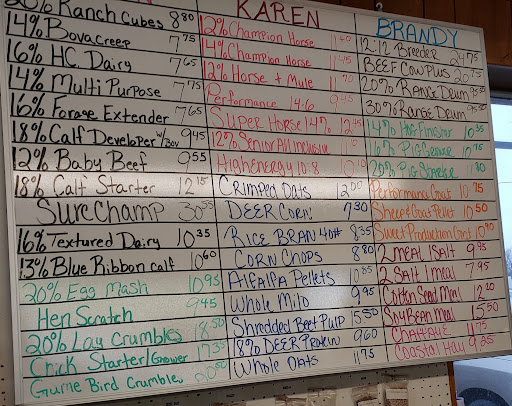 20% Ranch Cubes 8 80
14% Bova creep 7 75
16% HC. Dairy 7 65
14% Multi Purpose 7 75
16% Forage Extender 7 65
18% Calf Developer w/Bov 9 45
12% Baby Beef 9 55
18% Calf Starter 12 15
SureChamp 30 55
16% Textured Dairy 10 35
13% Blue Ribbon calf 10 60
20% Egg Mash 10 95
Hen Scratch 9 45
20% Lay Crumbles 18 50
Chick Starter/Grower 17 35
Game Bird Crumble
KAREN
12% Champion Horse
14% Champion Horse 11 45
12% Horse + Mule 11 70
Performance 14-6 9 45
Super Horse 14% 12 45
12% Senior All inclusive
High energy 10-8 10 10
Crimped Oats 12 00
DEER CORN 7 30
RICE BRAN 40# 8 35
CORN CHOPS 8 80
Alfalfa Pellets 10 85
Whole Milo 9 95
Shredded Beet Pulp 15 50
18% DEER Protein 9 60
Whole Oats 11 75
BRANDY
12:12 Breeder 24 75
BEEF COW PLUS 20 75
20% Range Drum
30% Range Drum
14% Hog Finisher 10 35
16% Pig Grower 10 75
20% Pig Starter 11 80
Performance Goat 10 75
Sheep & Goat Pellet 10 50
Sweet Production Goat 10 90
2 meal 1 Salt 9 95
2 Salt 1 meal 7 95
Cotton Seed Meal 12 10
Soy Bean Meal 15 50
11 75
Coastal Hay 9 25